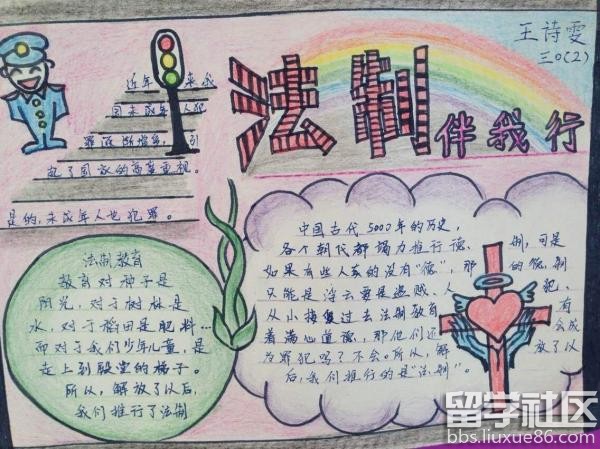 王诗雯
三○(2)
法制
伴我行
近年来我
国未成年人犯
罪逐渐增多,引
起了国家的高度重视。
是的,未成年人也犯罪。
法制教育
教育对种子是
阳光,对于树林是
水,对于稻田是肥料…
而对于我们少年儿童,是
走上到殿堂的梯子。
所以,解放了以后,
我们推行了法制
中国古代5000年的历史,
各个朝代都竭力推行德、制,可是
如果有些人家的没有“德”,那的德,制
只能是浮云要是盗贼、人犯、
从小接受过去法制教育有
着满心道德,那他们还会成
为罪犯吗?不会。所以,解放了以
后,我们推行的是“法、制”。
留学社区
bbs.liuxue86.com